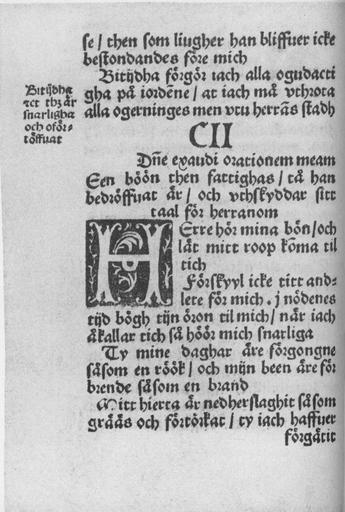 se / then som liugher han bliffuer icke
bestondandes före mich
Bitijdha förgör iach alla ogudacti
gha på iordēne / at iach må vthrota
alla ogerninges men vtu herrās stadh
Bitijdha
thz är
snarligha
och oför-
töffuat
CII
Dñe exaudi orationem meam
Een böön then fattighas / tå han
bedröffuat är / och vthskyddar sitt
taal för herranom
HErre hör mina bön / och
lät mitt roop kōma til
tich
Förskyyl icke titt and-
lete för mich. j nödenes
tijd bögh tijn öron til mich / når iach
åkallar tich så höör mich snarliga
Ty mine daghar äre förgongne
såsom en röök / och mijn been äre för
brende såsom en brand
Mitt hierta är nedherslaghit såsom
grääs och förtörkat / ty iach haffuer
förgätit